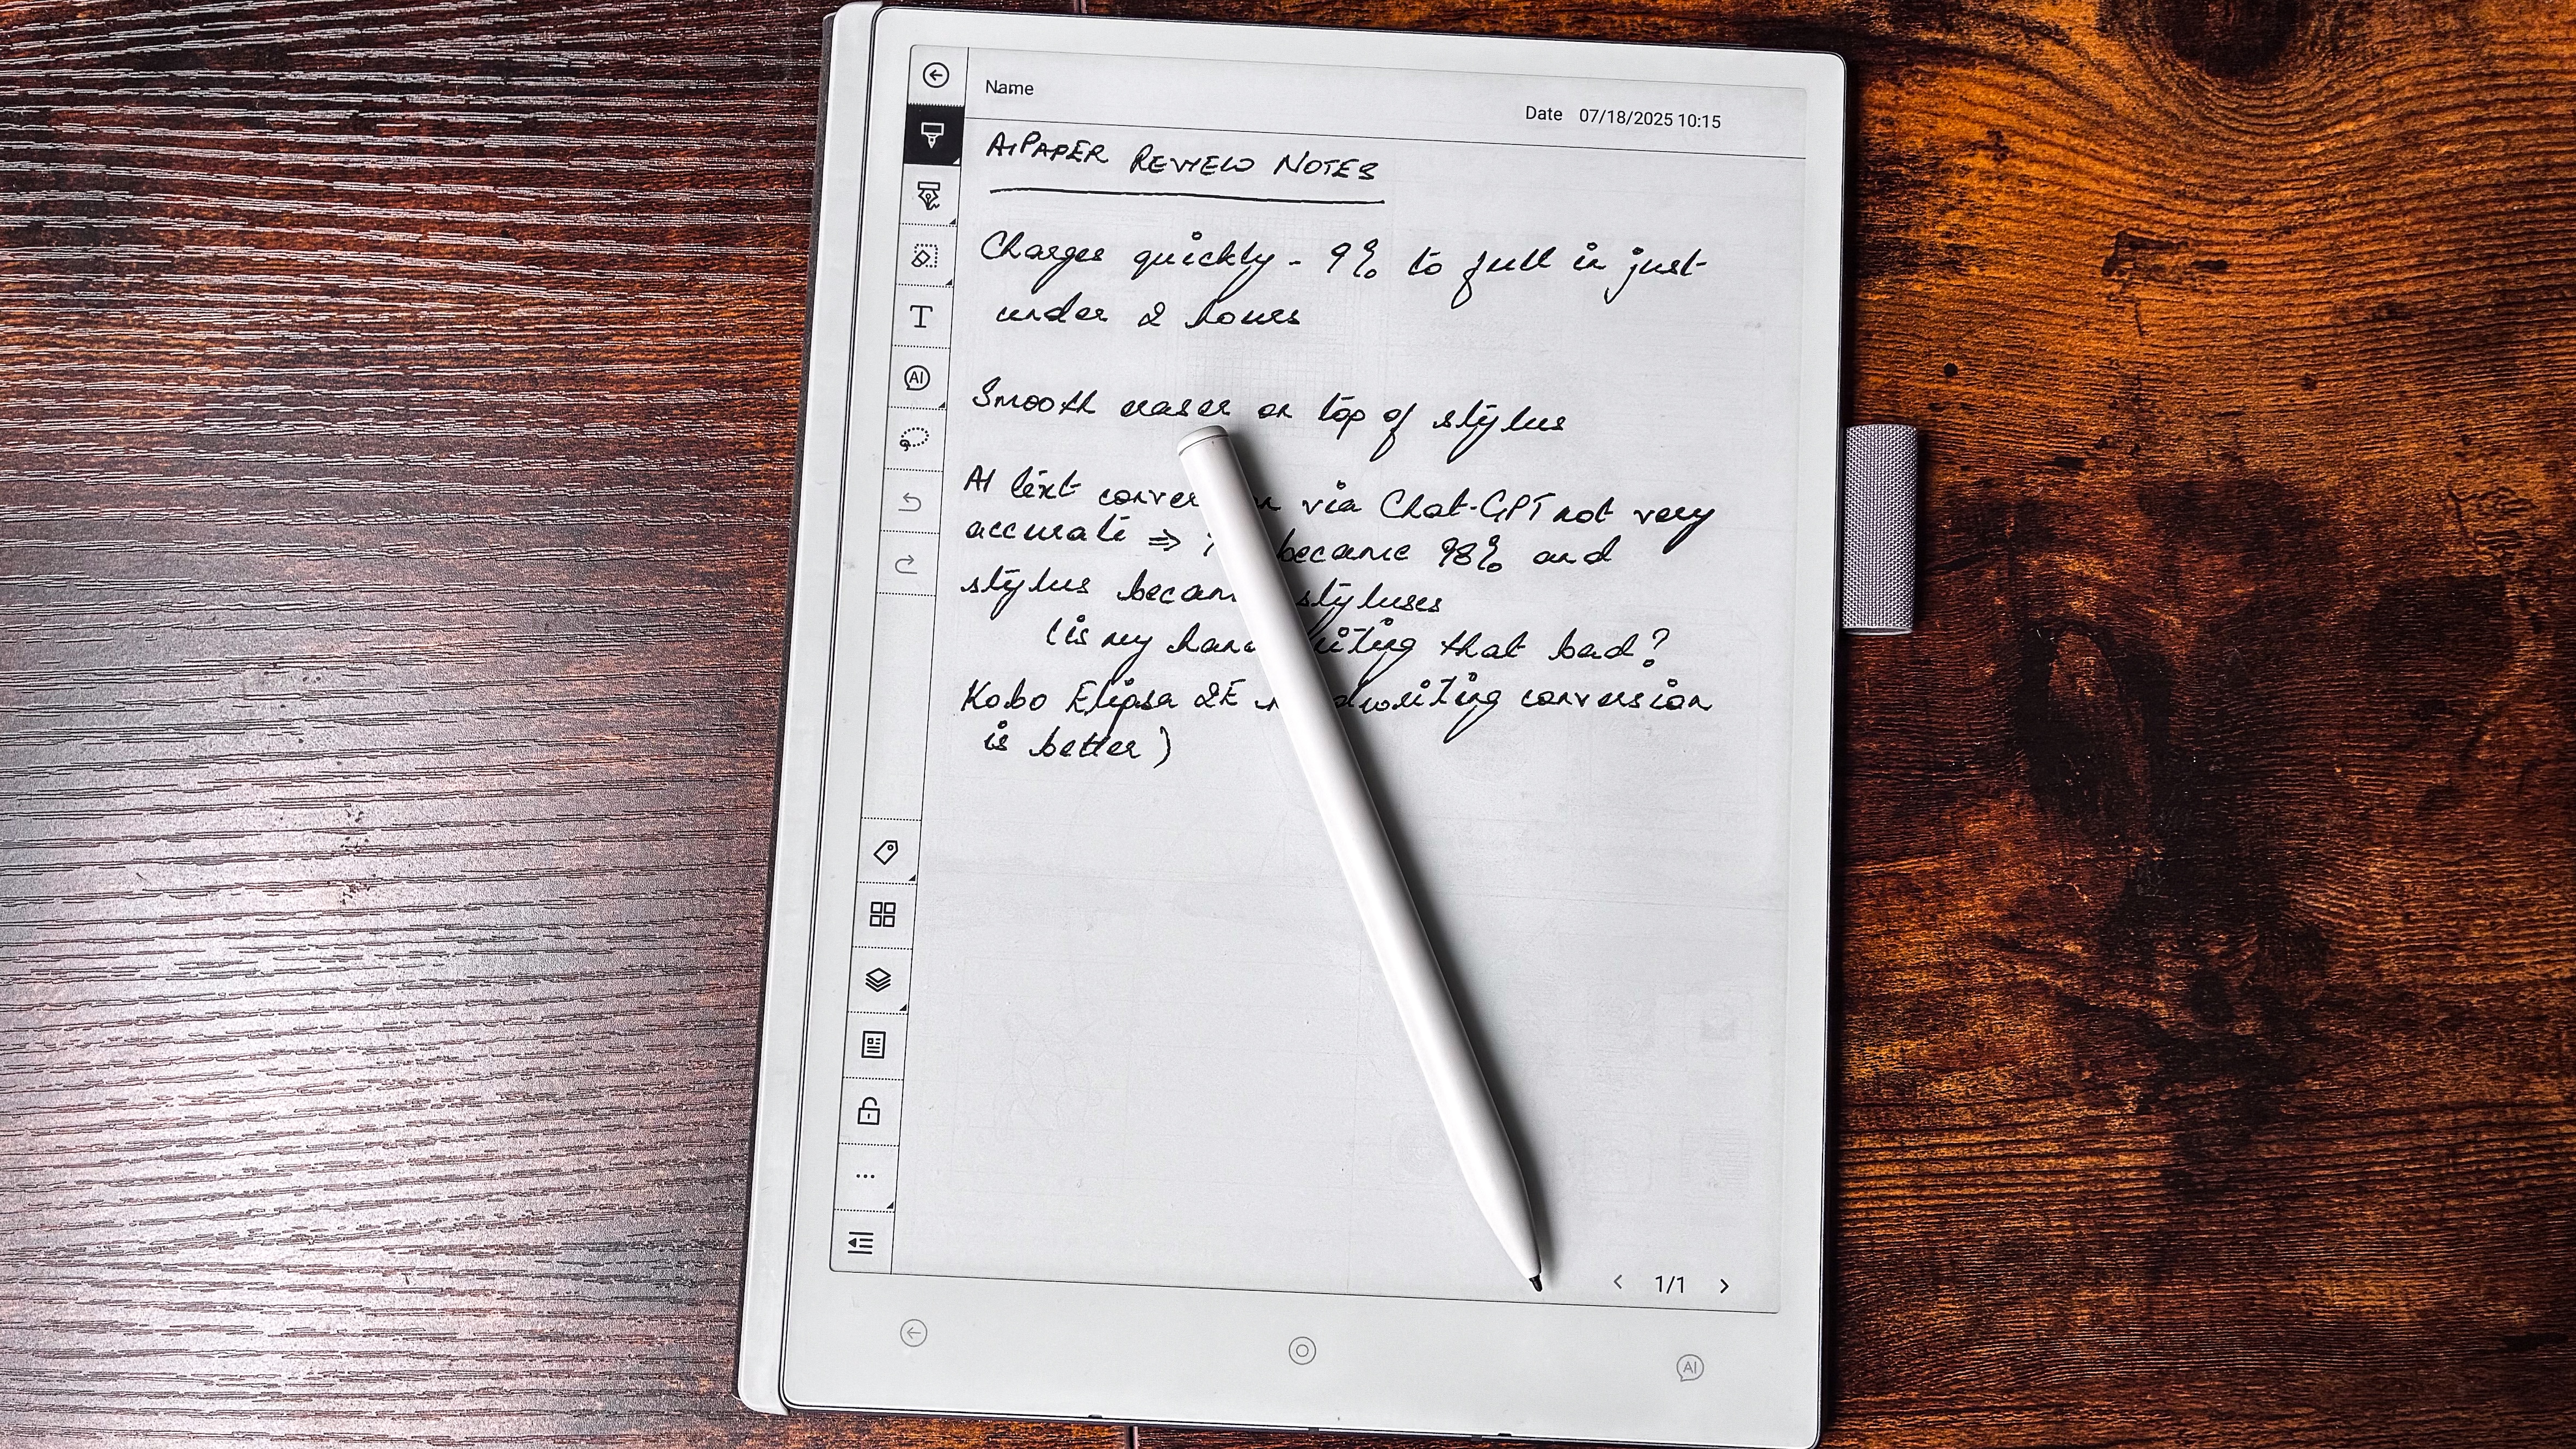 Name
Date 07/18/2025 10:15
AiPAPER REVIEW NOTES
Charges quickly - 9% to full in just
under 2 hours
Smooth eraser on top of stylus
AI text via Chat-GPT not very
accurate ⇒ became 98% and
stylus styluses
(is my that bad?
Kobo Elipsa 2E conversion
is better)
T
AI
1/1
AI